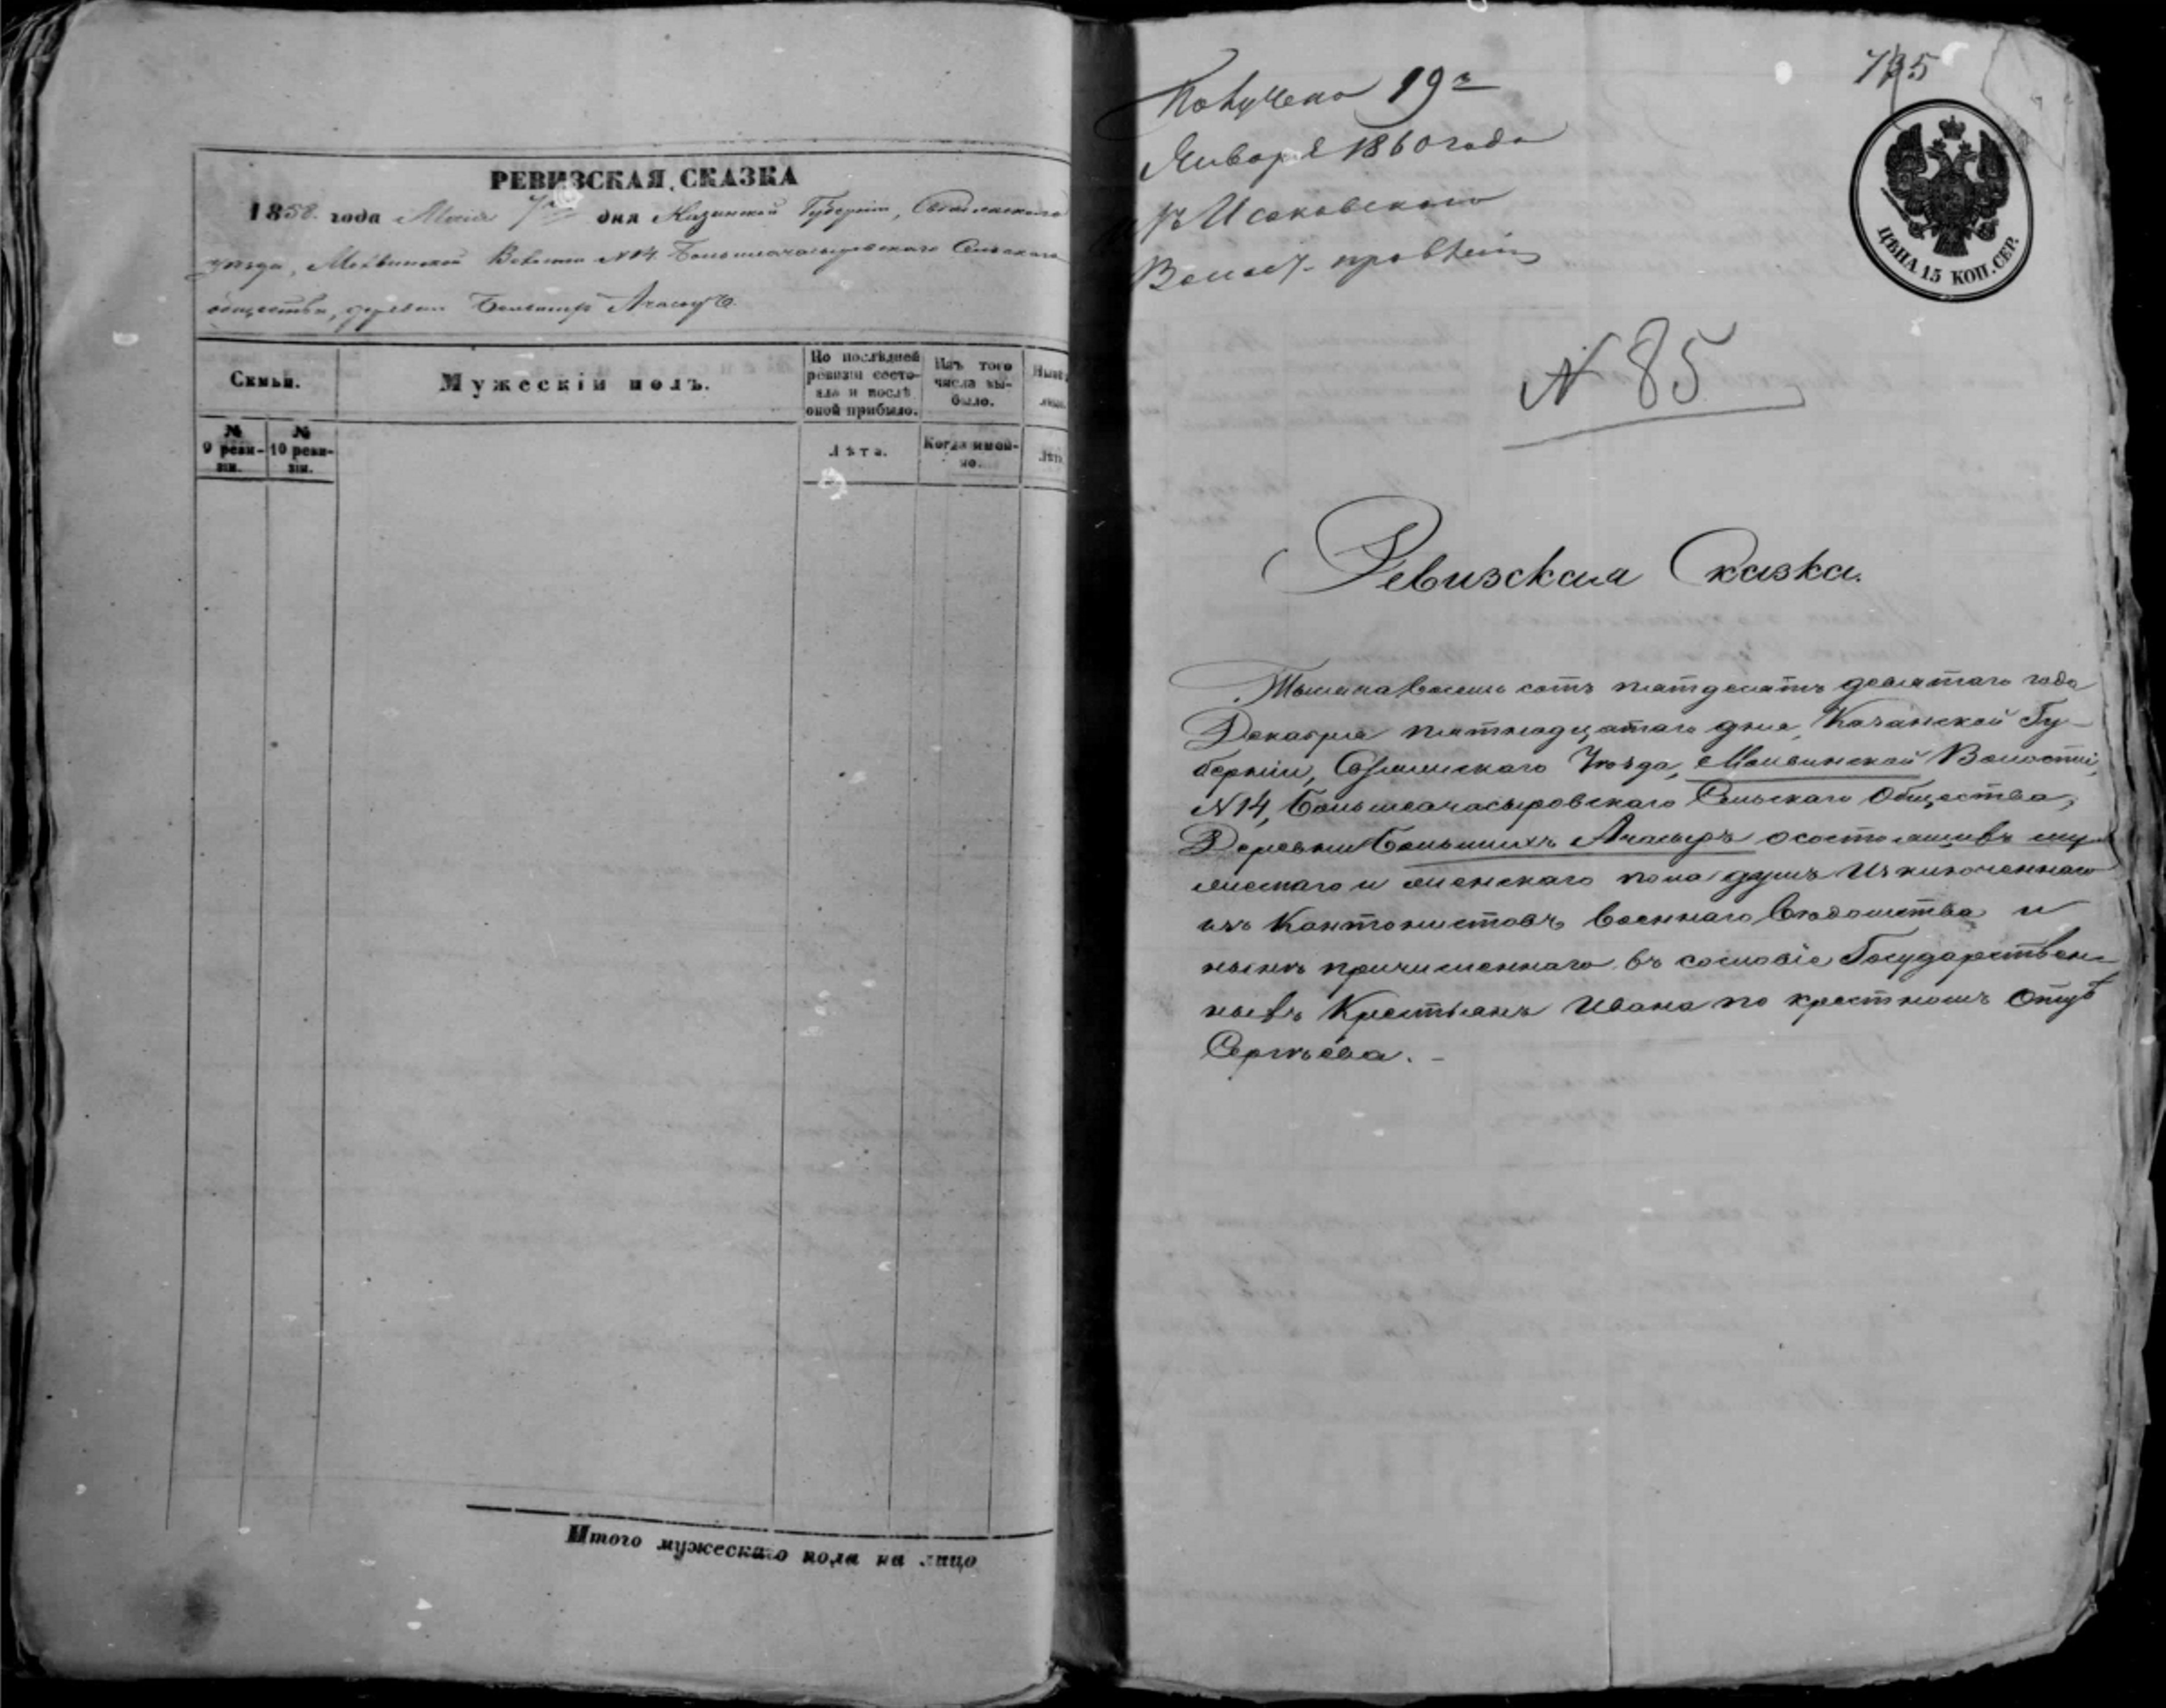 РЕВИЗСКАЯ СКАЗКА
1858 года Мая 7го дня Казанской Губернии, Свіяжскаго
уѣзда, Молвинской Волости №14 Большеачасыровскаго Сельскаго
общества, деревни Большихъ Ачасыръ.
Семьи.
Мужескій полъ.
По послѣдней ревизіи состояло и послѣ оной прибыло.
Изъ того числа выбыло.
№ 9 ревизіи.
№ 10 ревизіи.
Лѣта.
Когда именно.
Лѣта
Итого мужескаго пола на лицо
Получено 19го
Января 1860 года
Исаковскаго
Волост. правленія
ЦѢНА 15 КОП. СЕР.
№ 85
Ревизская Сказка.
Тысяча восемь сотъ пятдесятъ девятаго года
Декабря пятнадцатаго дня, Казанской Гу-
берніи, Свіяжскаго Уѣзда, Молвинской Волости,
№14, Большеачасыровскаго Сельскаго Общества,
Деревни Большихъ Ачасыръ о состоящихъ му-
жескаго и женскаго пола душъ Изключеннаго
изъ Кантонистовъ Военнаго Вѣдомства и
нынѣ причисленнаго въ сословіе Государствен-
ныхъ Крестьянъ Ивана по крестномъ Отцѣ
Сергѣева. -